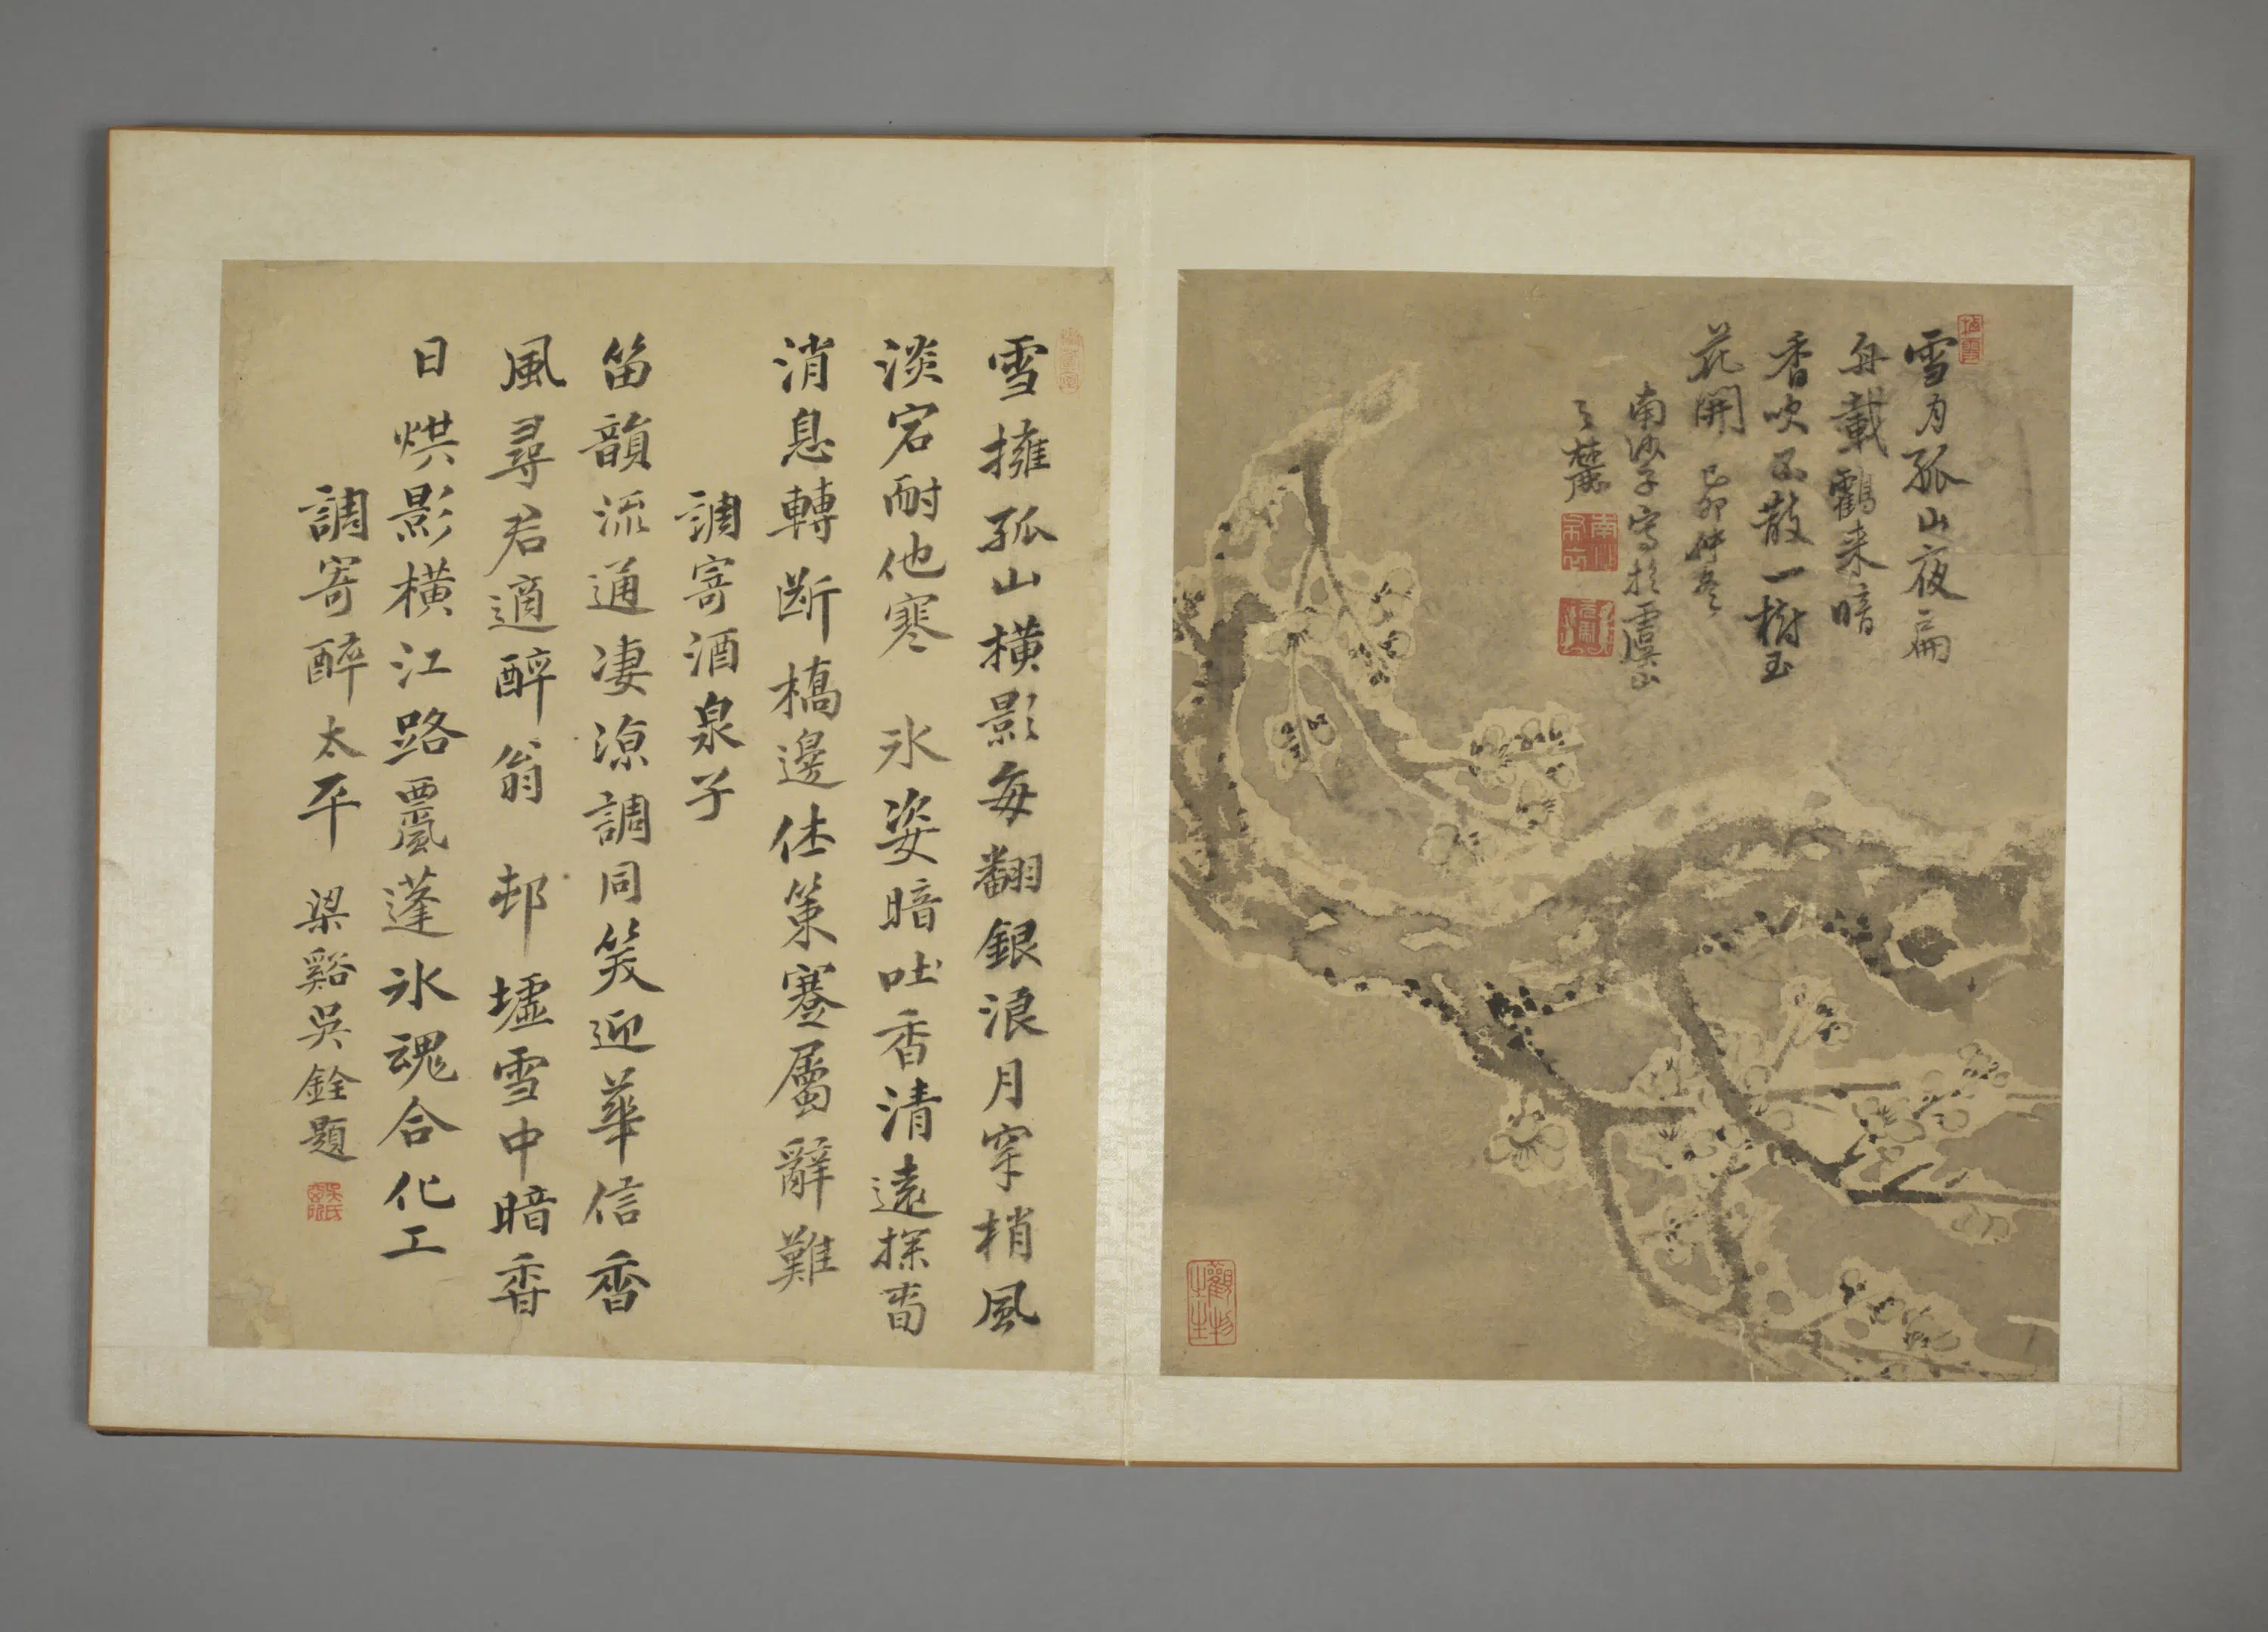 雪月孤山夜扁
舟載鶴来暗
香吹不散一樹玉
花開 己卯仲冬
南沙子寫於虞山
之麓
雪擁孤山橫影每翻銀浪月穿梢風
淡宕耐他寒 氷姿暗吐香清遠探
消息轉斷橋邊仕策蹇屬辭難
調寄酒泉子
笛韻流通淒涼調同笑迎華信香
風尋君適醉翁 邨墟雪中暗香
日烘影橫江路蓬氷魂合化工
調寄醉太平 梁谿吳銓題